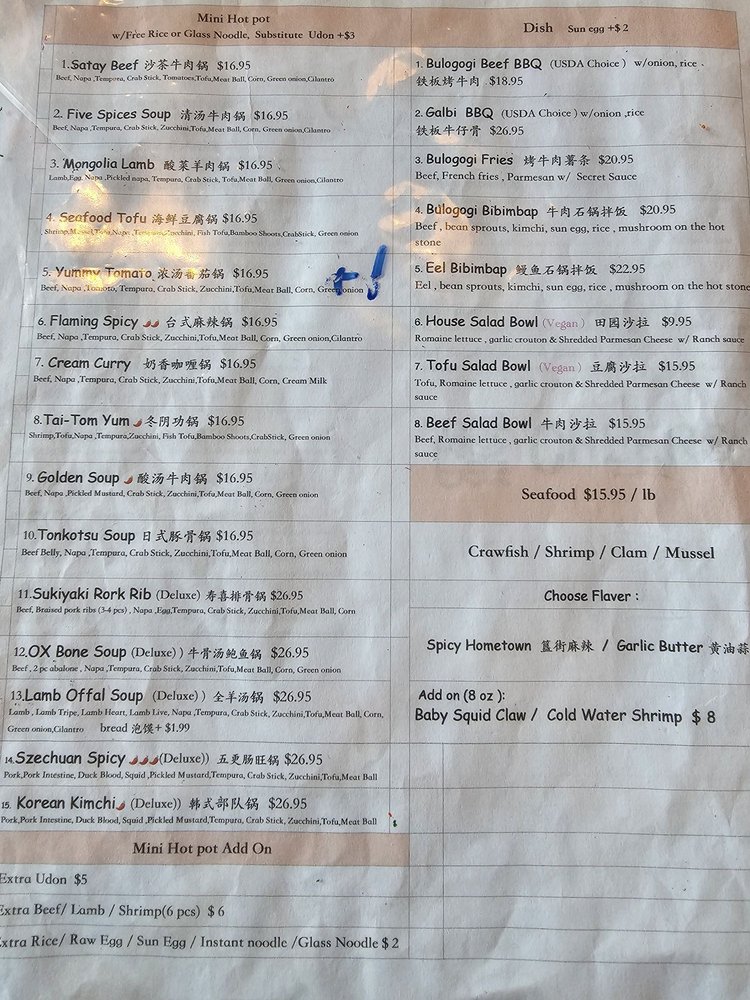 Mini Hot pot
w/Free Rice or Glass Noodle, Substitute Udon +$3
1.Satay Beef 沙茶牛肉锅 $16.95
Beef, Napa ,Tempura, Crab Stick, Tomatoes,Tofu,Meat Ball, Corn, Green onion,Cilantro
2. Five Spices Soup 清汤牛肉锅 $16.95
Beef, Napa ,Tempura, Crab Stick, Zucchini,Tofu,Meat Ball, Corn, Green onion,Cilantro
3. Mongolia Lamb 酸菜羊肉锅 $16.95
Lamb,Egg, Napa ,Pickled napa, Tempura, Crab Stick, Tofu,Meat Ball, Corn, Green onion,Cilantro
4. Seafood Tofu 海鲜豆腐锅 $16.95
Shrimp,Mussel,Tofu,Napa ,Tempura,Zucchini, Fish Tofu,Bamboo Shoots,CrabStick, Green onion
5. Yummy Tomato 浓汤番茄锅 $16.95 +1
Beef, Napa ,Tomoto, Tempura, Crab Stick, Zucchini,Tofu,Meat Ball, Corn, Green onion
6. Flaming Spicy 台式麻辣锅 $16.95
Beef, Napa ,Tempura, Crab Stick, Zucchini,Tofu,Meat Ball, Corn, Green onion,Cilantro
7. Cream Curry 奶香咖喱锅 $16.95
Beef, Napa ,Tempura, Crab Stick, Zucchini,Tofu,Meat Ball, Corn, Cream Milk
8.Tai-Tom Yum 冬阴功锅 $16.95
Shrimp,Tofu,Napa ,Tempura,Zucchini, Fish Tofu,Bamboo Shoots,CrabStick, Green onion
9. Golden Soup 酸汤牛肉锅 $16.95
Beef, Napa ,Pickled Mustard, Crab Stick, Zucchini,Tofu,Meat Ball, Corn, Green onion
10.Tonkotsu Soup 日式豚骨锅 $16.95
Beef Belly, Napa ,Tempura, Crab Stick, Zucchini,Tofu,Meat Ball, Corn, Green onion
11.Sukiyaki Rork Rib (Deluxe) 寿喜排骨锅 $26.95
Beef, Braised pork ribs (3-4 pcs) , Napa ,Egg,Tempura, Crab Stick, Zucchini,Tofu,Meat Ball, Corn
12.OX Bone Soup (Deluxe)) 牛骨汤鲍鱼锅 $26.95
Beef , 2 pc abalone , Napa ,Tempura, Crab Stick, Zucchini,Tofu,Meat Ball, Corn, Green onion
13.Lamb Offal Soup (Deluxe)) 全羊汤锅 $26.95
Lamb , Lamb Tripe, Lamb Heart, Lamb Live, Napa ,Tempura, Crab Stick, Zucchini,Tofu,Meat Ball, Corn,
Green onion,Cilantro bread 泡馍+ $1.99
14.Szechuan Spicy (Deluxe)) 五更肠旺锅 $26.95
Pork,Pork Intestine, Duck Blood, Squid ,Pickled Mustard,Tempura, Crab Stick, Zucchini,Tofu,Meat Ball
15. Korean Kimchi (Deluxe)) 韩式部队锅 $26.95
Pork,Pork Intestine, Duck Blood, Squid ,Pickled Mustard,Tempura, Crab Stick, Zucchini,Tofu,Meat Ball
Mini Hot pot Add On
Extra Udon $5
Extra Beef/ Lamb / Shrimp(6 pcs) $ 6
xtra Rice/ Raw Egg / Sun Egg / Instant noodle /Glass Noodle $ 2
Dish Sun egg +$ 2
1. Bulogogi Beef BBQ (USDA Choice ) w/onion, rice .
铁板烤牛肉 $18.95
2. Galbi BBQ (USDA Choice ) w/onion ,rice
铁板牛仔骨 $26.95
3. Bulogogi Fries 烤牛肉薯条 $20.95
Beef, French fries , Parmesan w/ Secret Sauce
4. Bulogogi Bibimbap 牛肉石锅拌饭 $20.95
Beef , bean sprouts, kimchi, sun egg, rice , mushroom on the hot
stone
5. Eel Bibimbap 鳗鱼石锅拌饭 $22.95
Eel , bean sprouts, kimchi, sun egg, rice , mushroom on the hot stone
6. House Salad Bowl (Vegan ) 田园沙拉 $9.95
Romaine lettuce , garlic crouton & Shredded Parmesan Cheese w/ Ranch sauce
7. Tofu Salad Bowl (Vegan ) 豆腐沙拉 $15.95
Tofu, Romaine lettuce , garlic crouton & Shredded Parmesan Cheese w/ Ranch
sauce
8. Beef Salad Bowl 牛肉沙拉 $15.95
Beef, Romaine lettuce , garlic crouton & Shredded Parmesan Cheese w/ Ranch
sauce
Seafood $15.95 / lb
Crawfish / Shrimp / Clam / Mussel
Choose Flaver :
Spicy Hometown 簋街麻辣 / Garlic Butter 黄油蒜
Add on (8 oz ):
Baby Squid Claw / Cold Water Shrimp $ 8